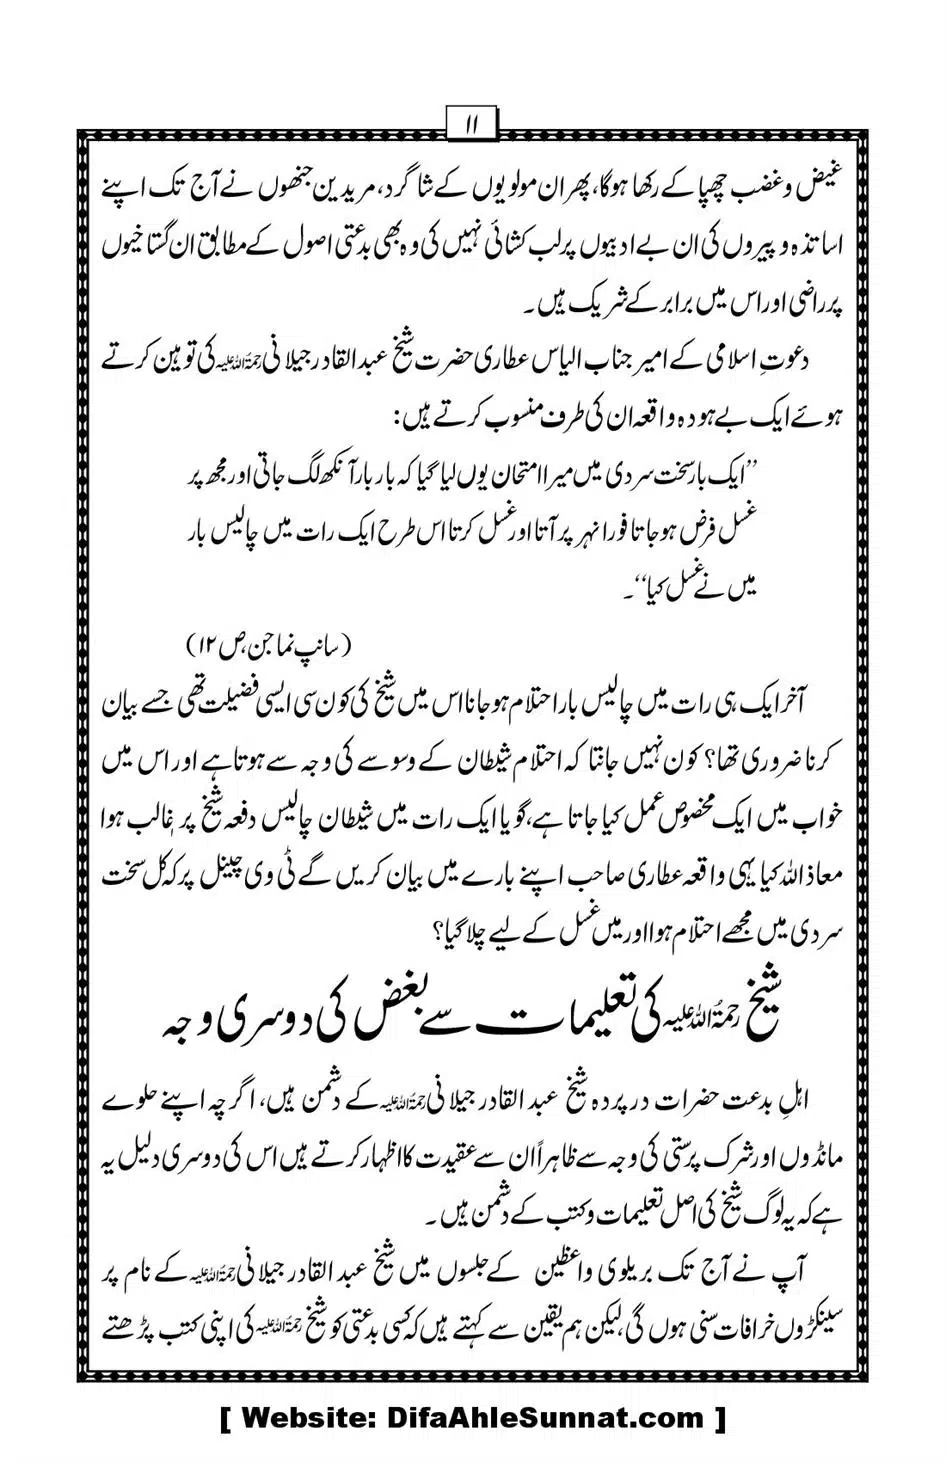 ۱۱
غیض وغضب چھپا کے رکھا ہوگا، پھر ان مولویوں کے شاگرد، مریدین جنھوں نے آج تک اپنے
اساتذہ و پیروں کی ان بے ادبیوں پر لب کشائی نہیں کی وہ بھی بدعتی اصول کے مطابق ان گستاخیوں
پر راضی اور اس میں برابر کے شریک ہیں۔
دعوتِ اسلامی کے امیر جناب الیاس عطاری حضرت شیخ عبدالقادر جیلانی رحمۃ اللہ علیہ کی توہین کرتے
ہوئے ایک بے ہودہ واقعہ ان کی طرف منسوب کرتے ہیں:
’’ایک بار سخت سردی میں میرا امتحان یوں لیا گیا کہ بار بار آنکھ لگ جاتی اور مجھ پر
غسل فرض ہوجاتا فورا نہر پر آتا اور غسل کرتا اس طرح ایک رات میں چالیس بار
میں نے غسل کیا‘‘۔
(سانپ نما جن، ص ۱۲)
آخر ایک ہی رات میں چالیس بار احتلام ہوجانا اس میں شیخ کی کون سی ایسی فضیلت تھی جسے بیان
کرنا ضروری تھا؟ کون نہیں جانتا کہ احتلام شیطان کے وسوسے کی وجہ سے ہوتا ہے اور اس میں
خواب میں ایک مخصوص عمل کیا جاتا ہے، گویا ایک رات میں شیطان چالیس دفعہ شیخ پر غالب ہوا
معاذ اللہ کیا یہی واقعہ عطاری صاحب اپنے بارے میں بیان کریں گے ٹی وی چینل پر کہ کل سخت
سردی میں مجھے احتلام ہوا اور میں غسل کے لیے چلا گیا؟
شیخ رحمۃ اللہ علیہ کی تعلیمات سے بغض کی دوسری وجہ
اہلِ بدعت حضرات در پردہ شیخ عبدالقادر جیلانی رحمۃ اللہ علیہ کے دشمن ہیں، اگرچہ اپنے حلوے
مانڈوں اور شرک پرستی کی وجہ سے ظاہراً ان سے عقیدت کا اظہار کرتے ہیں اس کی دوسری دلیل یہ
ہے کہ یہ لوگ شیخ کی اصل تعلیمات و کتب کے دشمن ہیں۔
آپ نے آج تک بریلوی واعظین کے جلسوں میں شیخ عبدالقادر جیلانی رحمۃ اللہ علیہ کے نام پر
سینکڑوں خرافات سنی ہوں گی، لیکن ہم یقین سے کہتے ہیں کہ کسی بدعتی کو شیخ رحمۃ اللہ علیہ کی اپنی کتب پڑھتے
[ Website: DifaAhleSunnat.com ]